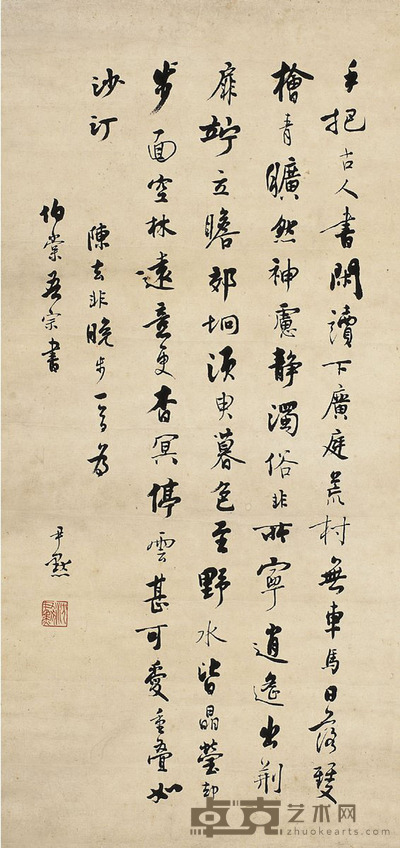 手把古人書閑讀下廣庭荒村無車馬日落雙
檜青曠然神慮靜濁俗非所寧逍遙出荊
扉竚立瞻郊坰須臾暮色至野水皆晶瑩却
步面空林遠意更杳冥停雲甚可愛重疊如
沙汀
陳去非晚步一首為
伯棠吾宗書
尹默
卓克艺术网
zhuokearts.com